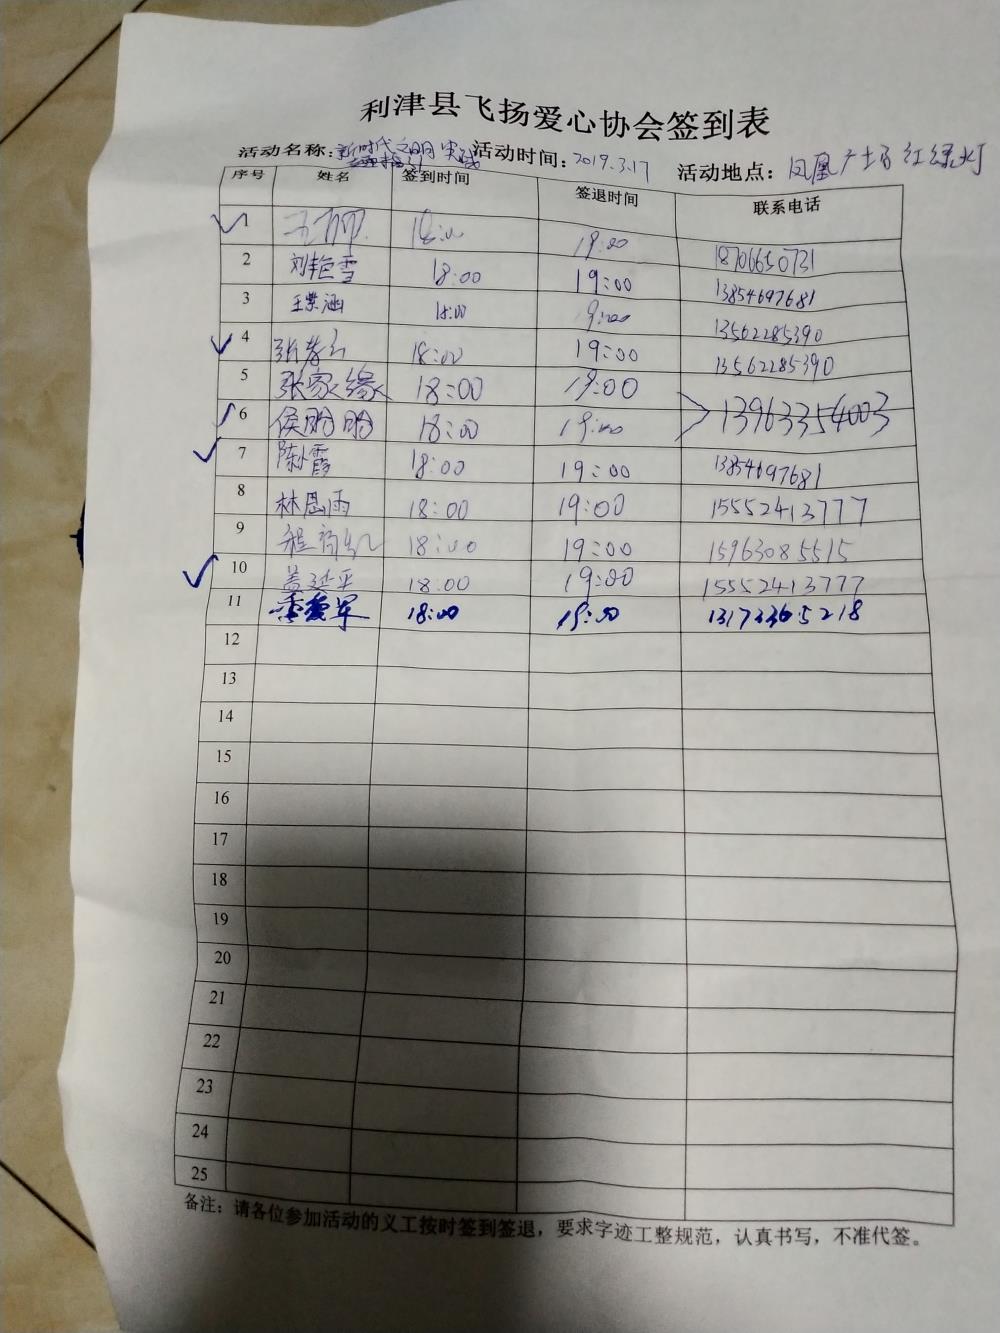 利津县飞扬爱心协会签到表
活动名称：新时代文明实践 活动时间：2019.3.17 活动地点：凤凰广场红绿灯
序号 姓名 签到时间 签退时间 联系电话
1 18:00 19:00 18706650731
2 刘艳雪 18:00 19:00 13854697681
3 王紫涵 18:00 19:00 13562285390
4 18:00 19:00 13562285390
5 张家缘 18:00 19:00 13963354003
6 侯明明 18:00 19:00
7 陈霞 18:00 19:00 13854697681
8 林思雨 18:00 19:00 15552413777
9 18:00 19:00 15963085515
10 盖延平 18:00 19:00 15552413777
11 18:00 19:00 13173365218
12
13
14
15
16
17
18
19
20
21
22
23
24
25
备注：请各位参加活动的义工按时签到签退，要求字迹工整规范，认真书写，不准代签。